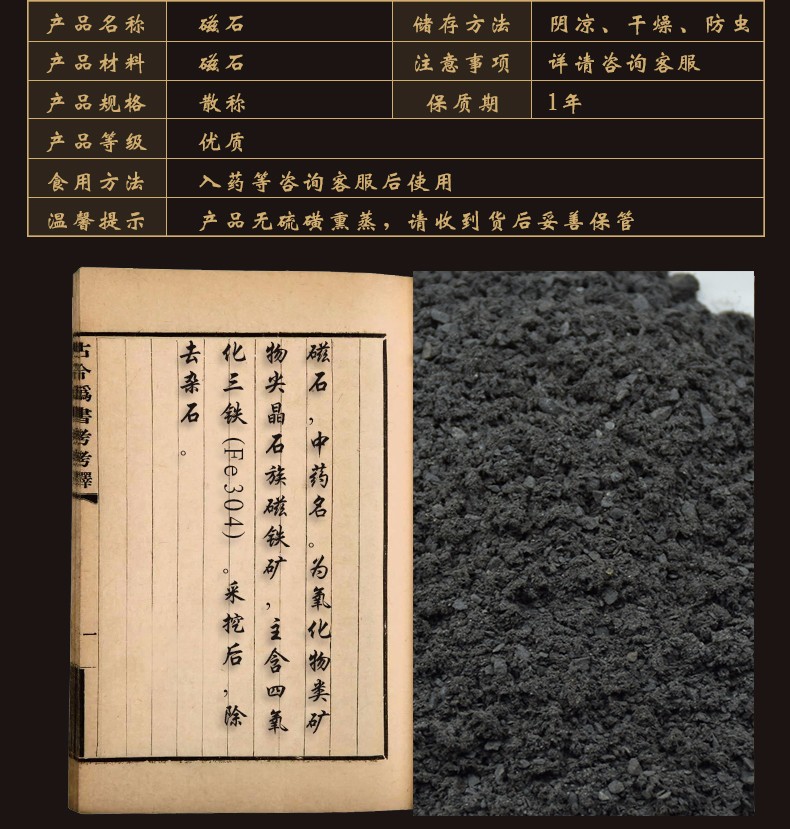 产品名称 磁石 储存方法 阴凉、干燥、防虫
产品材料 磁石 注意事项 详请咨询客服
产品规格 散称 保质期 1年
产品等级 优质
食用方法 入药等咨询客服后使用
温馨提示 产品无硫磺熏蒸，请收到货后妥善保管
磁石，中药名。为氧化物类矿
物尖晶石族磁铁矿，主含四氧
化三铁(Fe3O4)。采挖后，除
去杂石。
古今偽書考考釋
一